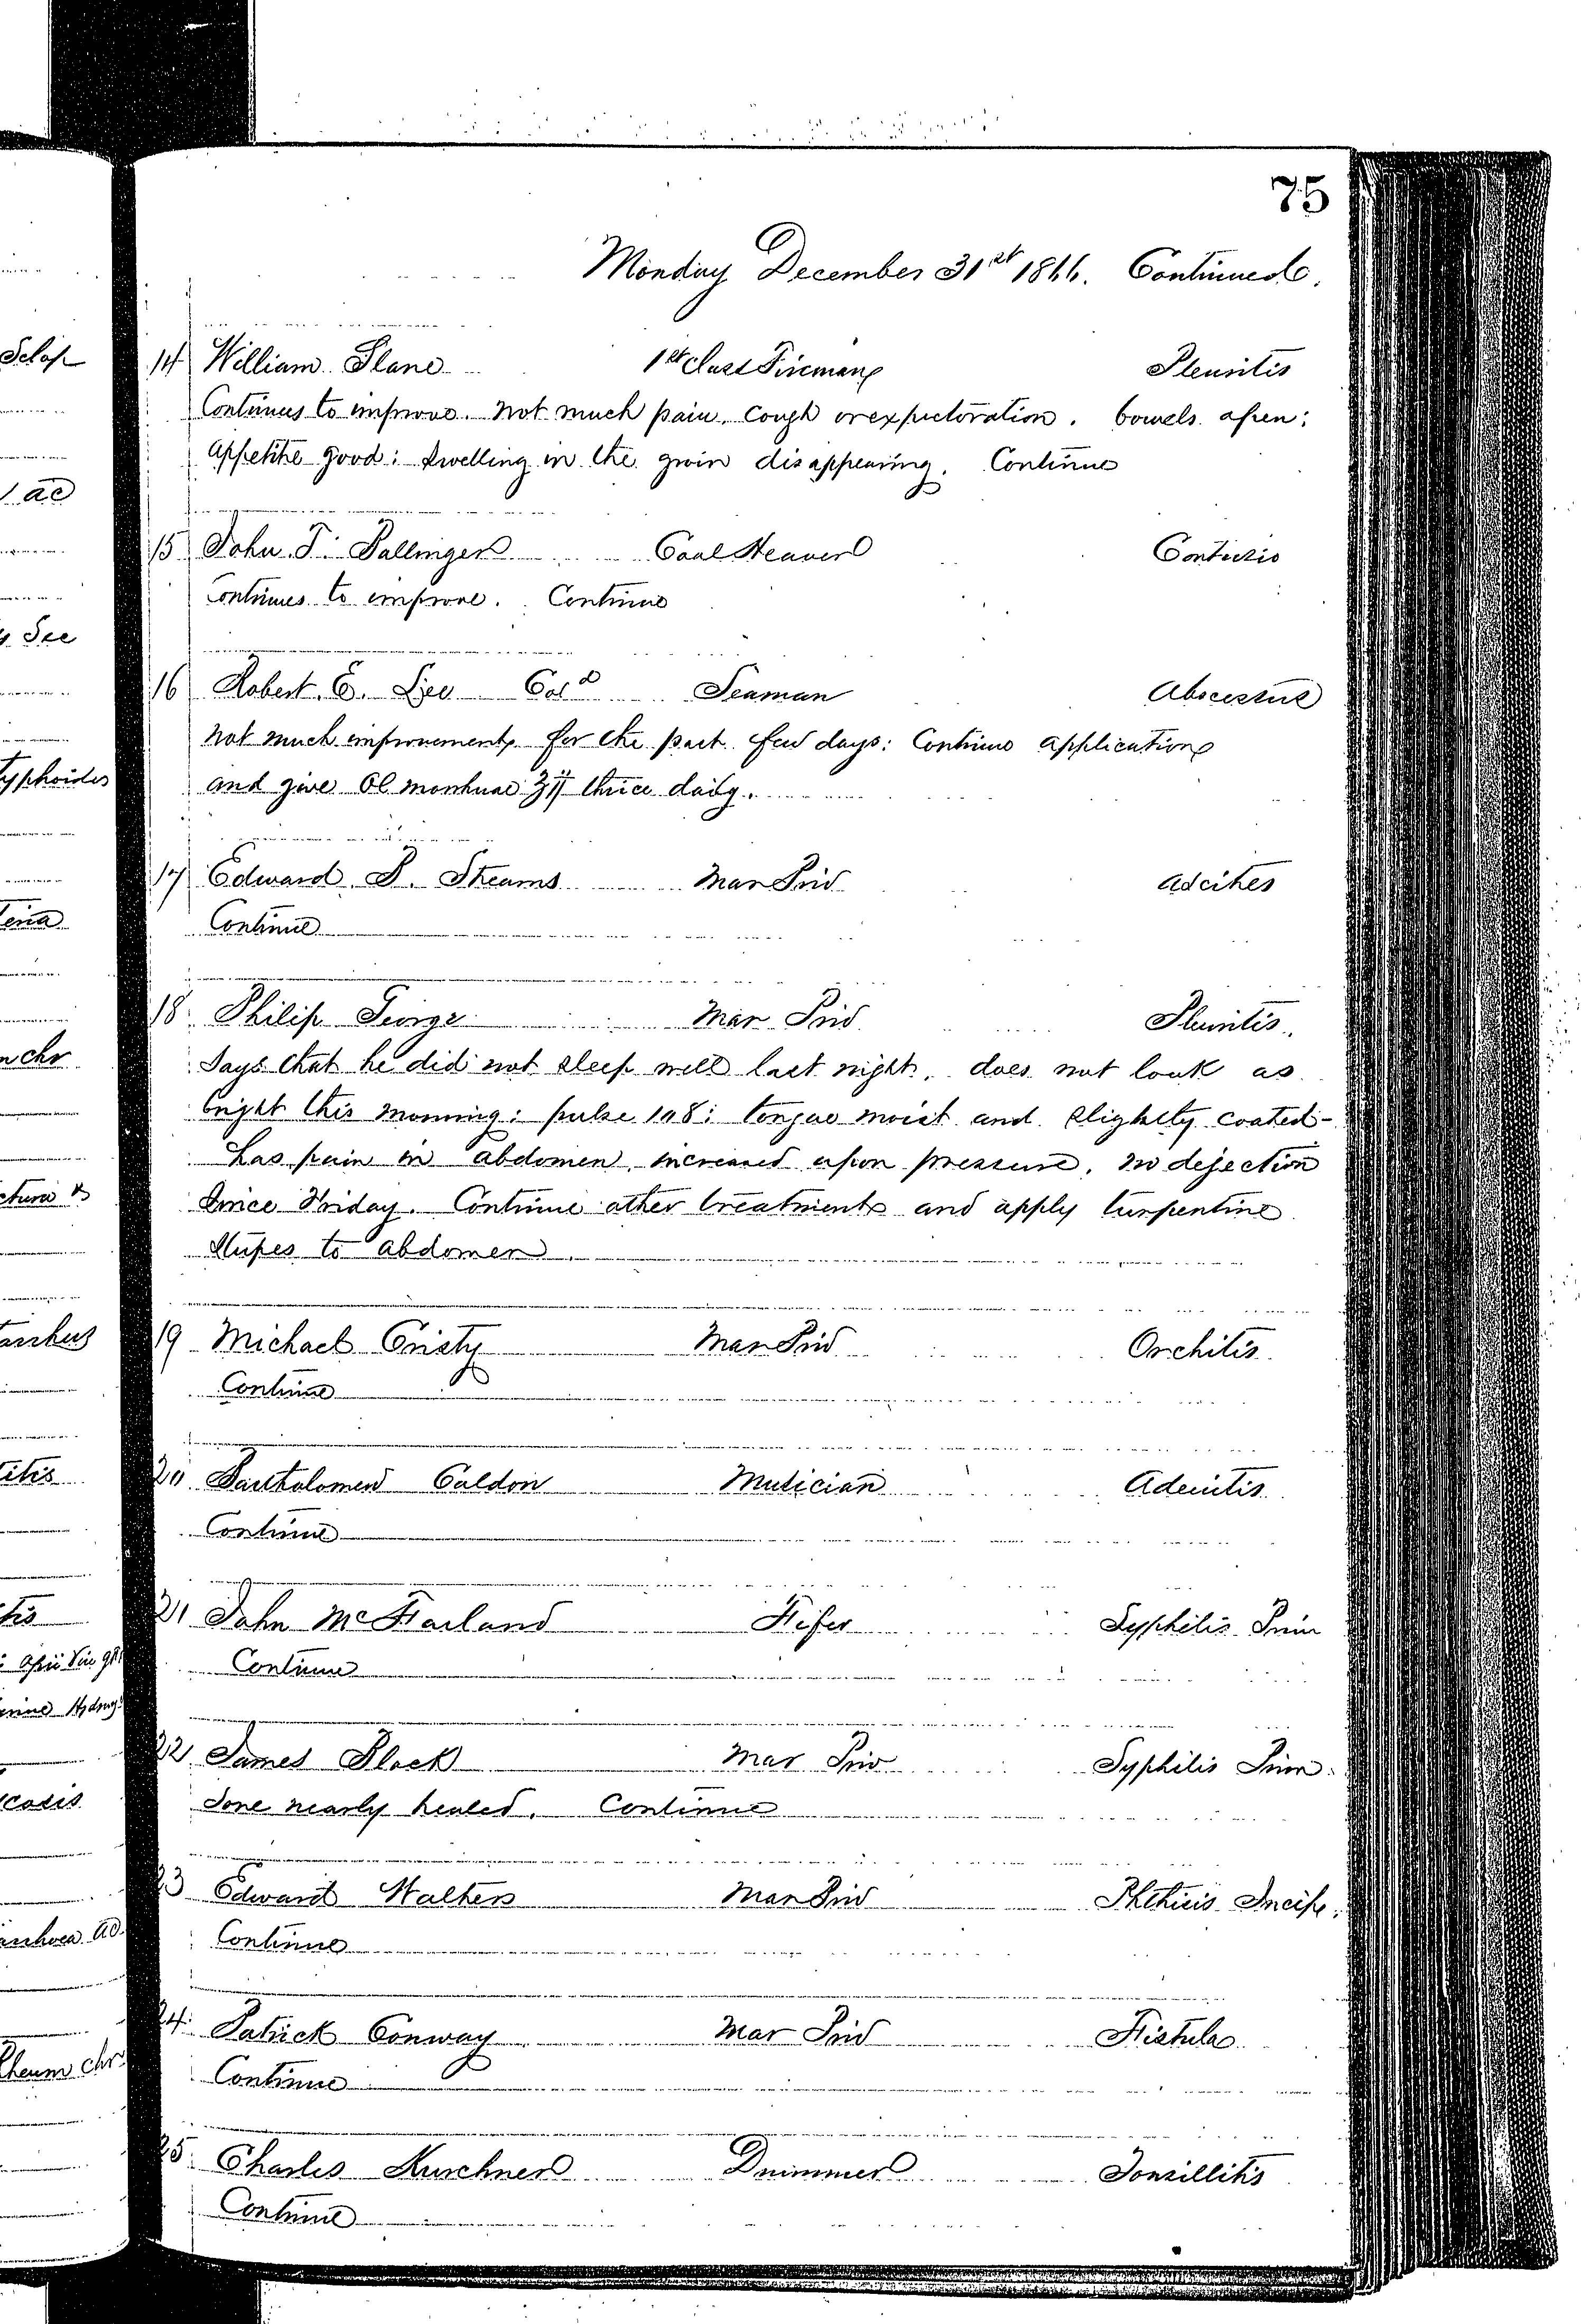 75
Monday December 31st 1866. Continued.
14 William Slane 1st Class Fireman Pleuritis
Continues to improve. Not much pain, cough or expectoration. bowels open:
appetite good: swelling in the groin disappearing. Continue
15 John F. Ballinger Coal Heaver Contusio
Continues to improve. Continue
16 Robert E. Lee Cold Seaman Abscessus
Not much improvement for the past few days: Continue application
and give Ol morrhuae ʒii thrice daily.
17 Edward P. Stearns Mar Priv Adcites
Continue
18 Philip George Mar Priv Pleuritis.
Says that he did not sleep well last night. does not look as
bright this morning: pulse 108: tongue moist and slightly coated-
has pain in abdomen, increased upon pressure. no dejection
since Friday. Continue other treatment and apply turpentine
stupes to abdomen.
19 Michael Cristy Mar Priv Orchitis
Continue
20 Bartholomew Caldon Musician Adenitis
Continue
21 John McFarland Fifer Syphilis Prim
Continue
22 James Block Mar Priv Syphilis Prim.
Sore nearly healed. Continue
23 Edward Walters Mar Priv Phthisis Incip.
Continue
24 Patrick Conway Mar Priv Fistula
Continue
25 Charles Kurchner Drummer Tonsillitis
Continue